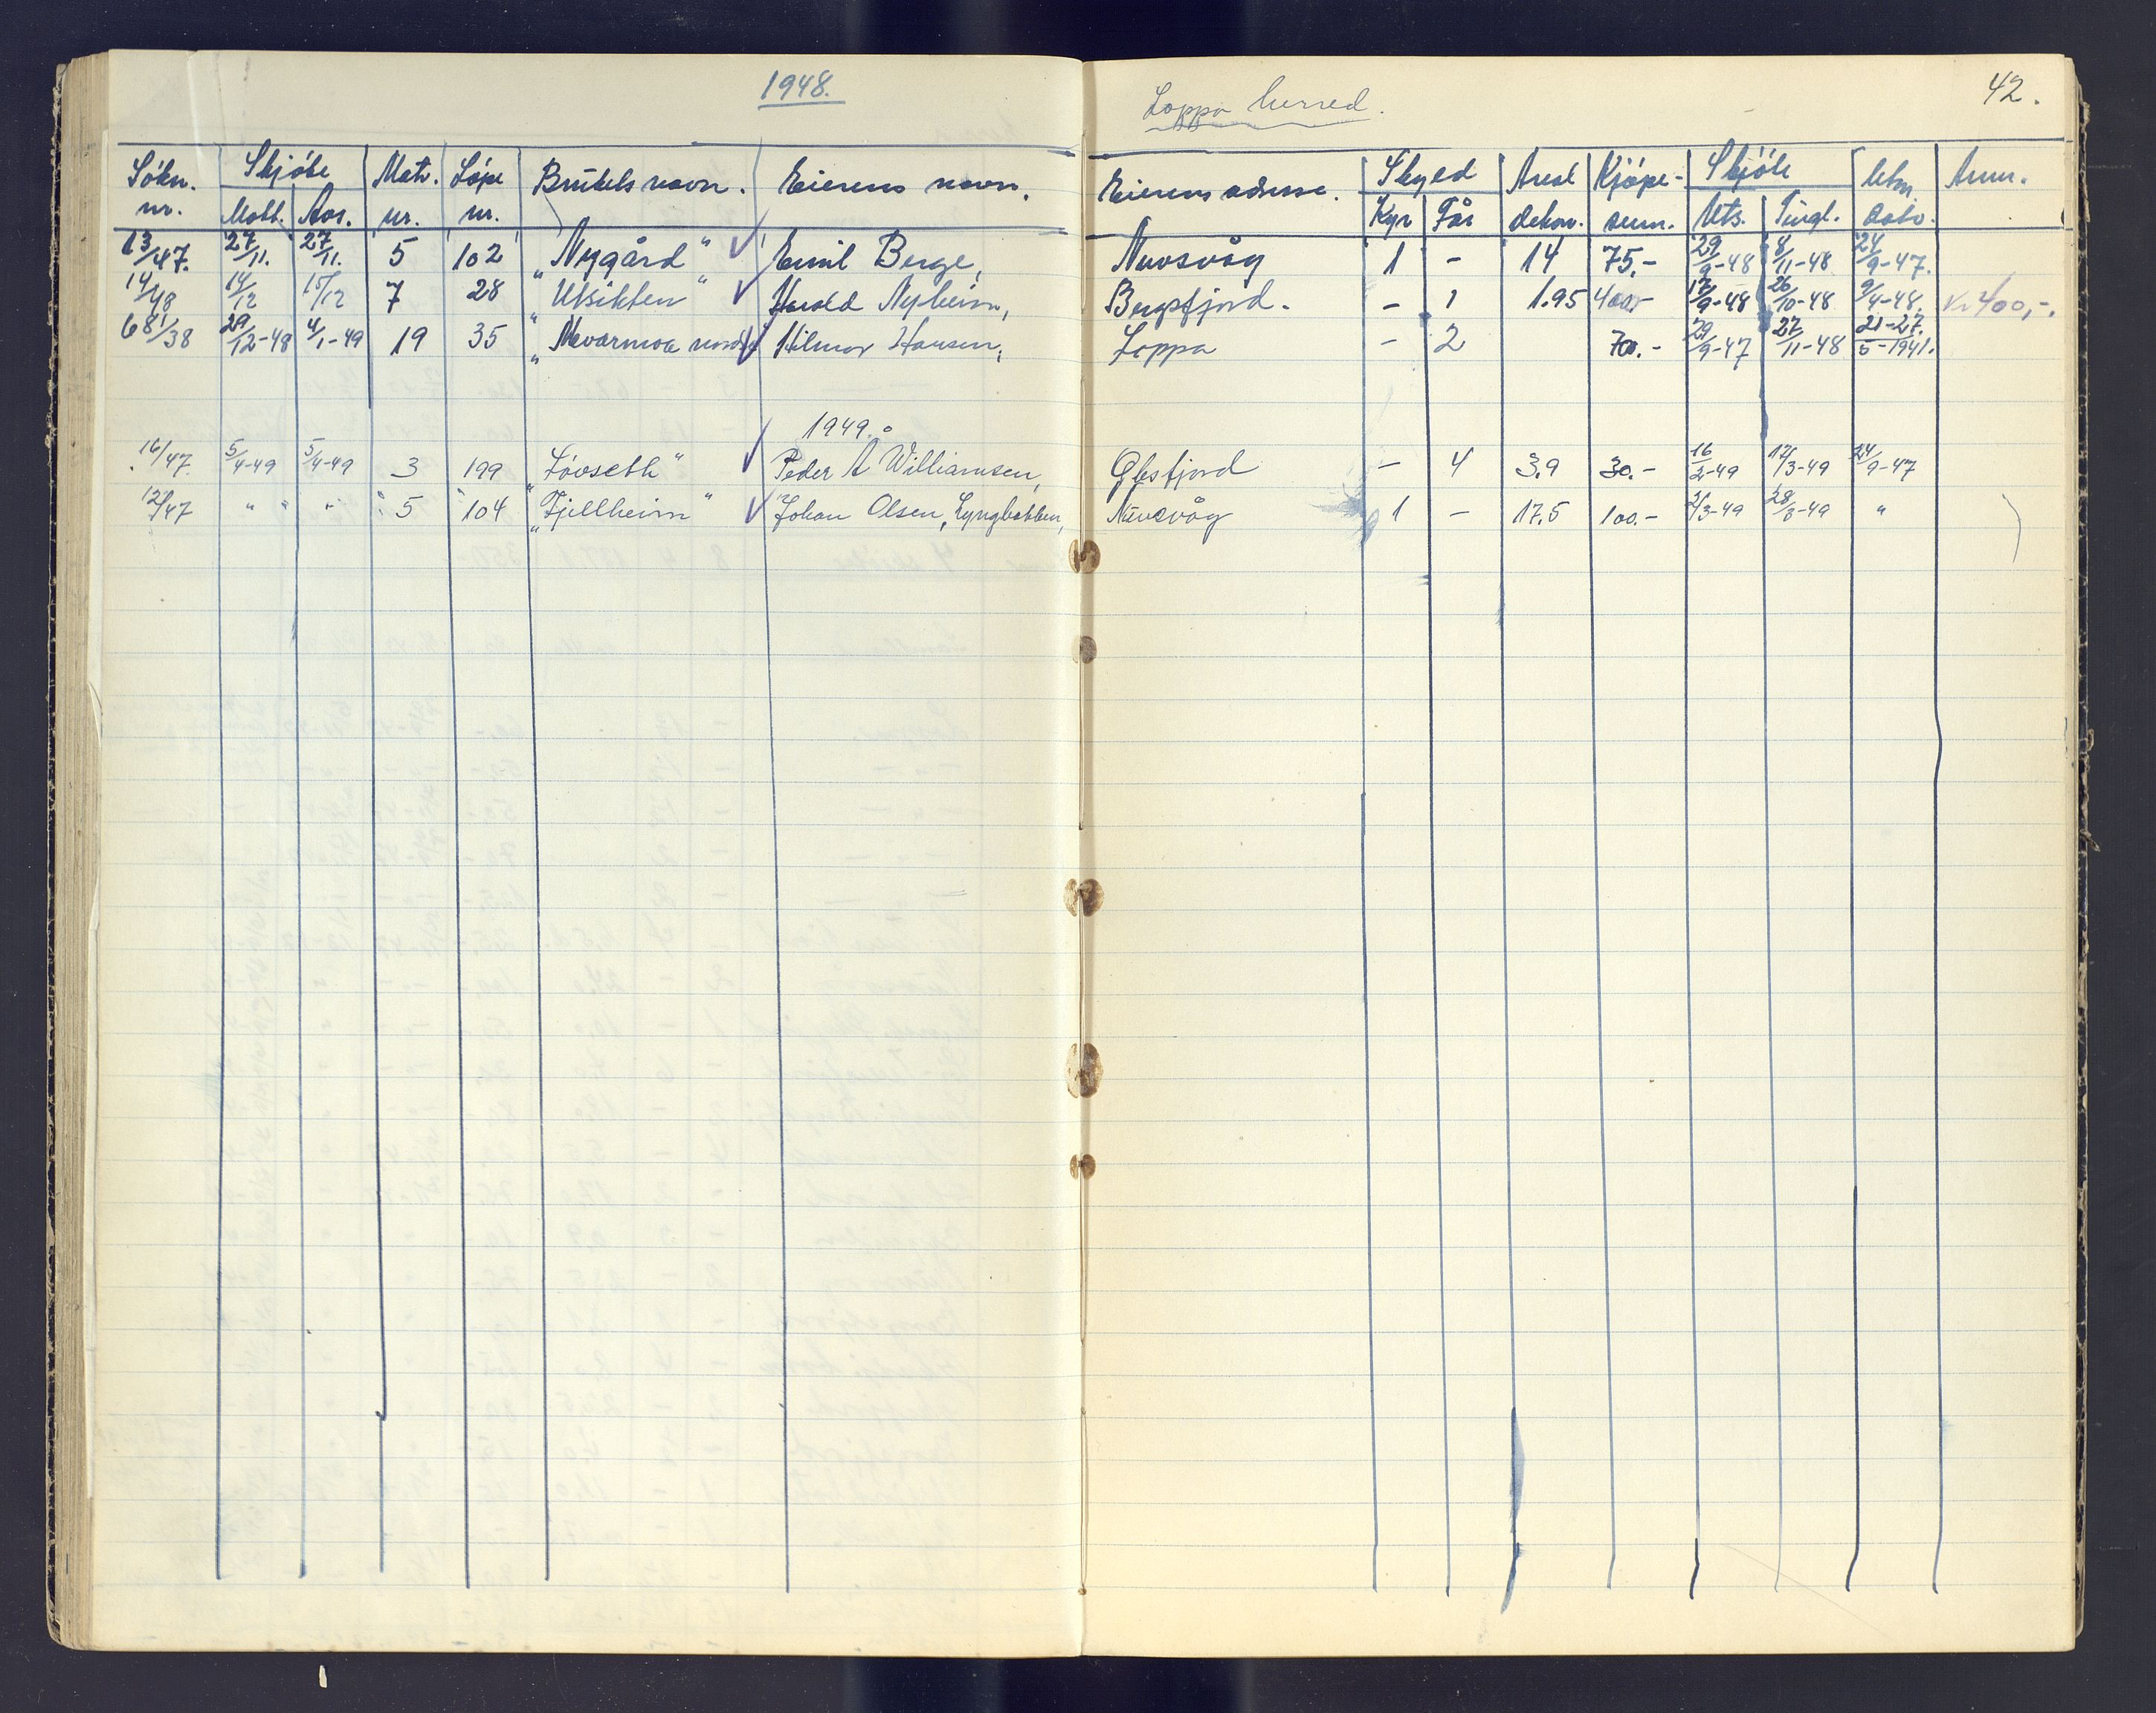 1948.
Loppa herred.
42.
Søkn. nr. Skjøte Matr. nr. Løpe nr. Brukets navn. Eierens navn. Eierens adresse. Skyld Areal dekar. Kjøpe- sum. Skjøte Anm.
Mott. Avs. Kyr Får Uts. Tingl. dato.
13/47. 27/11. 27/11. 5 102 „Nygård" Emil Berge, Nuvsvåg 1 - 14 75.- 29/9-48 8/11-48 24/9-47.
14/48 14/12 15/12 7 28 „Utsikten" Harald Nyheim, Bergsfjord. - 1 1.95 400.- 17/9-48 26/10-48 9/4-48. Kr 400,-.
681/38 29/12-48 4/1-49 19 35 „ Hilmar Hansen, Loppa - 2 700.- 29/9-47 27/11-48 21-27/5-1941.
1949.
16/47. 5/4-49 5/4-49 3 199 „Løvseth" Peder A Williamsen, - 4 3.9 30.- 16/2-49 17/3-49 24/9-47
12/47 " " " 5 104 „Fjellheim" Johan Olsen, Lyngbakken, Nuvsvåg 1 - 17.5 100.- /3-49 28/3-49 "